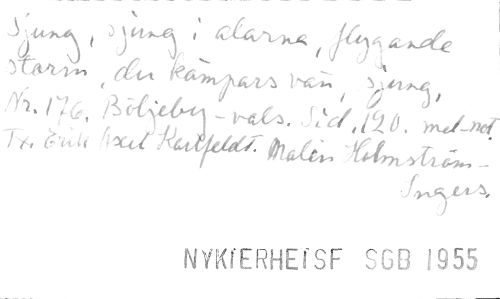 Sjung, sjung i alarna, flygande
storm, du kämpars vän, sjung,
Nr. 176. Böljeby-vals. Sid. 120. mel-not.
Tx. Erik Axel Karlfeldt. Malin Holmström-
Ingers.
NYKIERHEISF SGB 1955